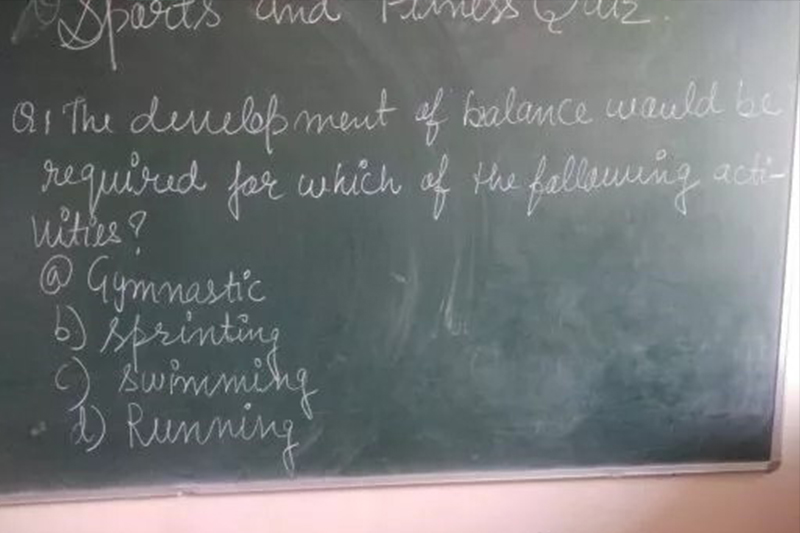 Sports and Fitness Quiz.
Q1 The development of balance would be
required for which of the following acti-
vities?
a) Gymnastic
b) Sprinting
c) swimming
d) Running